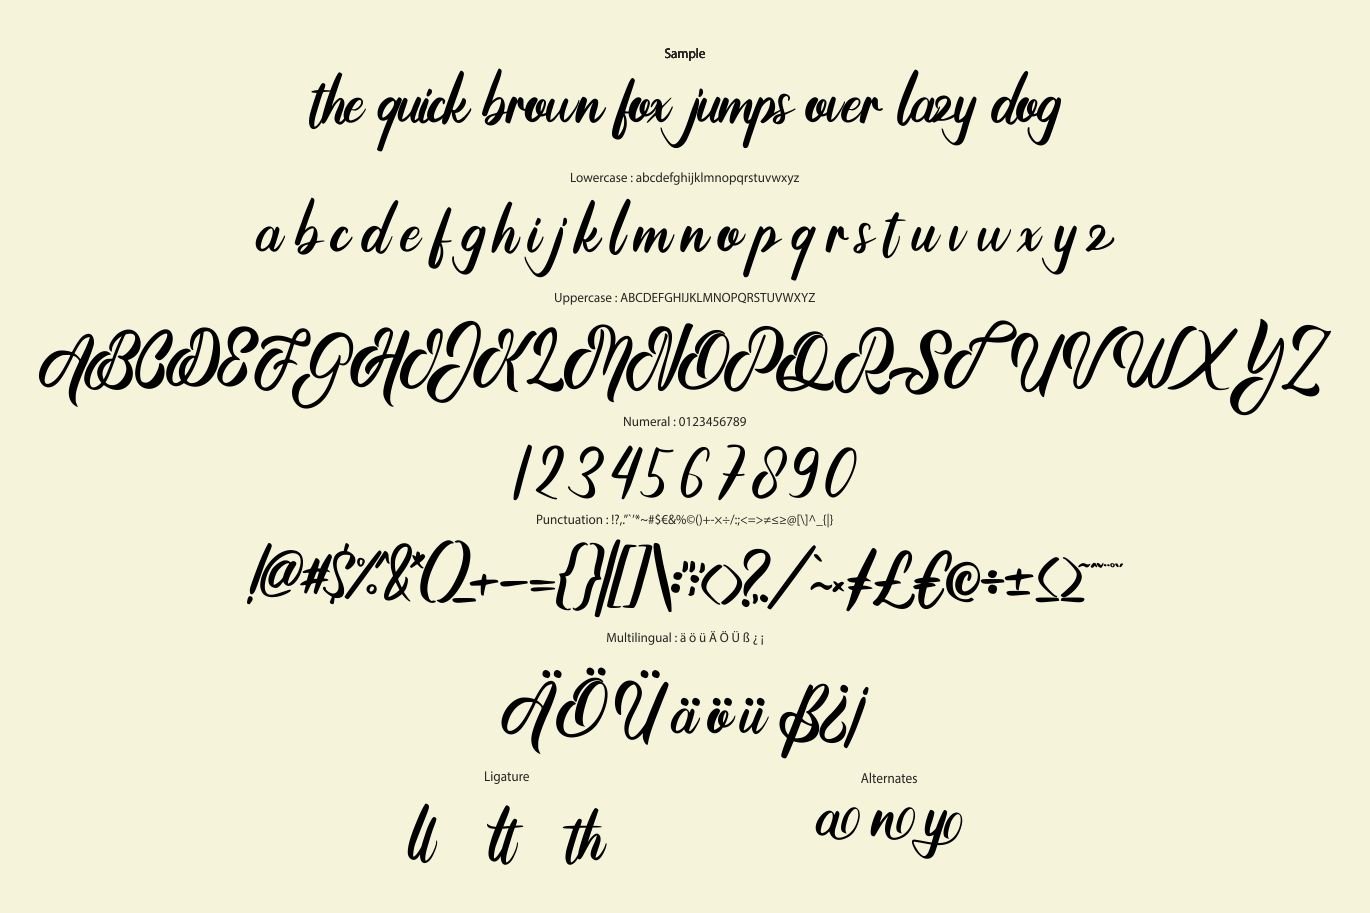 Sample
the quick brown fox jumps over lazy dog
Lowercase : abcdefghijklmnopqrstuvwxyz
a b c d e f g h i j k l m n o p q r s t u v w x y z
Uppercase : ABCDEFGHIJKLMNOPQRSTUVWXYZ
ABCDEFGHIJKLMNOPQRSTUVWXYZ
Numeral : 0123456789
1234567890
Punctuation : !?,.”`’*~#$€&%©()+-×÷/:;<=>≠≤≥@[\]^_{|}
!@#$%^&*()_+-={}|[]\:";'<>?,./`~×≠£€©÷±≤≥
Multilingual : ä ö ü Ä Ö Ü ß ¿ ¡
ÄÖÜäöüß¿¡
Ligature
Alternates
ll tt th
a n y